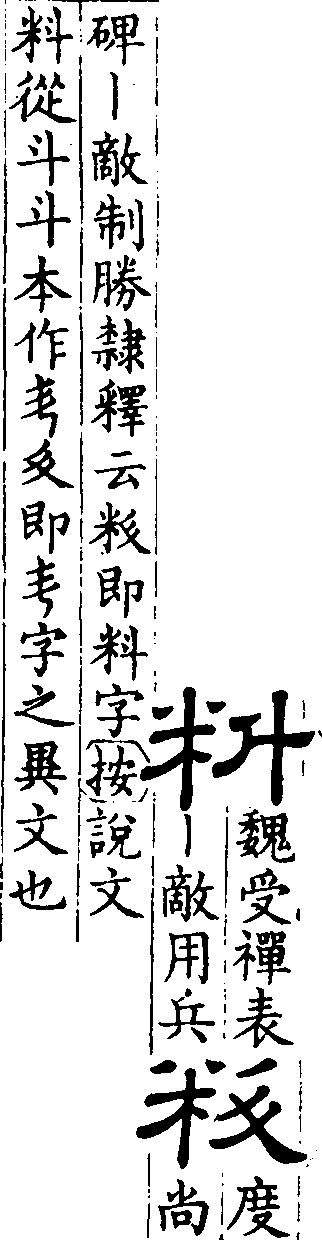 料
魏受禪表
丨敵用兵
度
尚
碑丨敵制勝隸釋云即料字按說文
料從斗斗本作即字之異文也